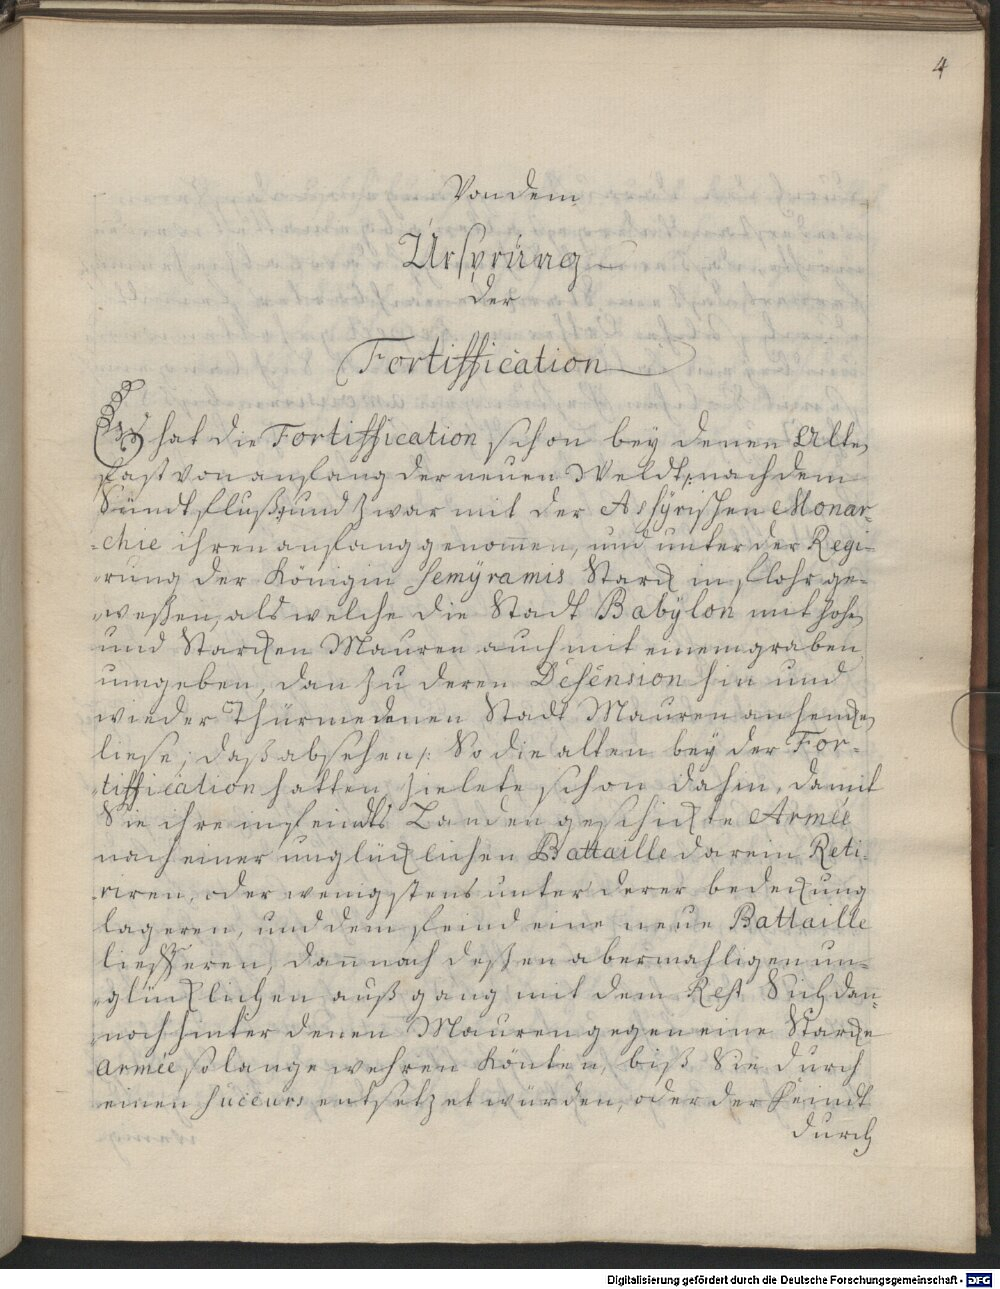 4
Von dem
Ursprüng
der
Fortiffication
Es hat die Fortiffication schon bey denen Alten
fast von anfang der neuen Weldt, nach dem
Sündtfluß, und zwar mit der Assÿrischen Monar-
-chie ihren anfang genom̄en, und unter der Regi-
-rung der Königin Semÿramis Starck in flohr ge-
-weßen, als welche die Stadt Babÿlon mit hohen
und Starcken Mauren auch mit einem graben
umgeben, dan zu deren Défénsion hin und
wieder Thürme denen Stadt Mauren anhencken
liese; daß absehen /: So die alten bey der For-
-tiffication hatten, zielete schon dahin, damit
Sie ihre in feindts Landen geschickte Armée
nach einer unglücklichen Battaille darein Reti-
-riren, oder wenigstens unter derer bedeckung
lageren, und dem feind eine neue Battaille
liefferen, dan̄ nach deßen abermahligen un-
-glücklichen außgang mit dem Rest Sich dan-
-noch hinter denen Mauren gegen eine Starcke
Armée solange wehren Könten, biß Sie durch
einen Succurs entsetzet würden, oder der feindt
durch
Digitalisierung gefördert durch die Deutsche Forschungsgemeinschaft - DFG